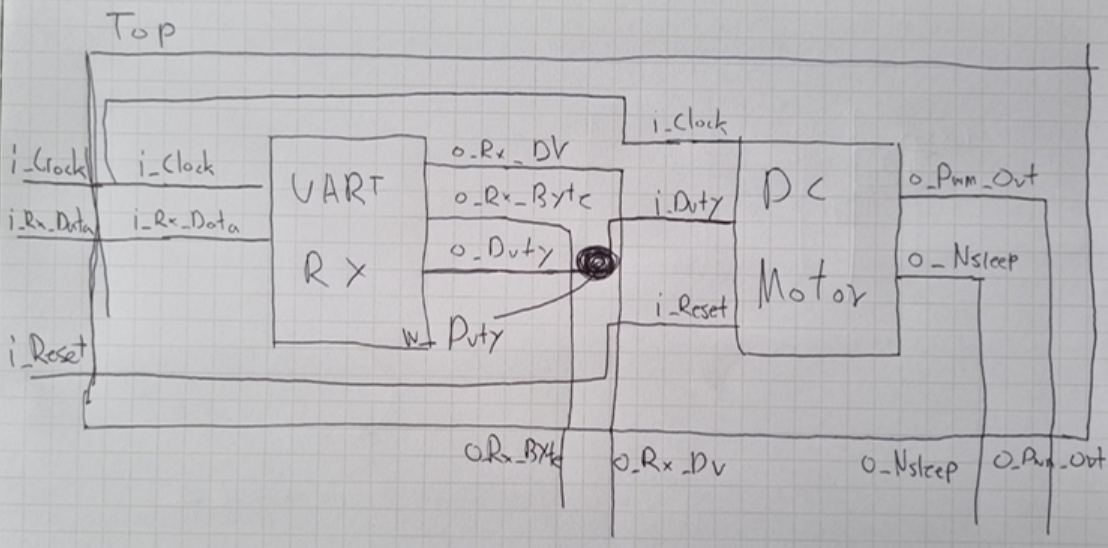 Top
i_Clock
i_Clock
i_Clock
o_Rx_DV
UART
RX
o_Rx_Byte
i_Duty
DC
Motor
o_Pwm_Out
i_Rx_Data
i_Rx_Data
o_Duty
o_Nsleep
i_Reset
w_Duty
i_Reset
o_Rx_Byte
o_Rx_Dv
o_Nsleep
o_Pwm_Out